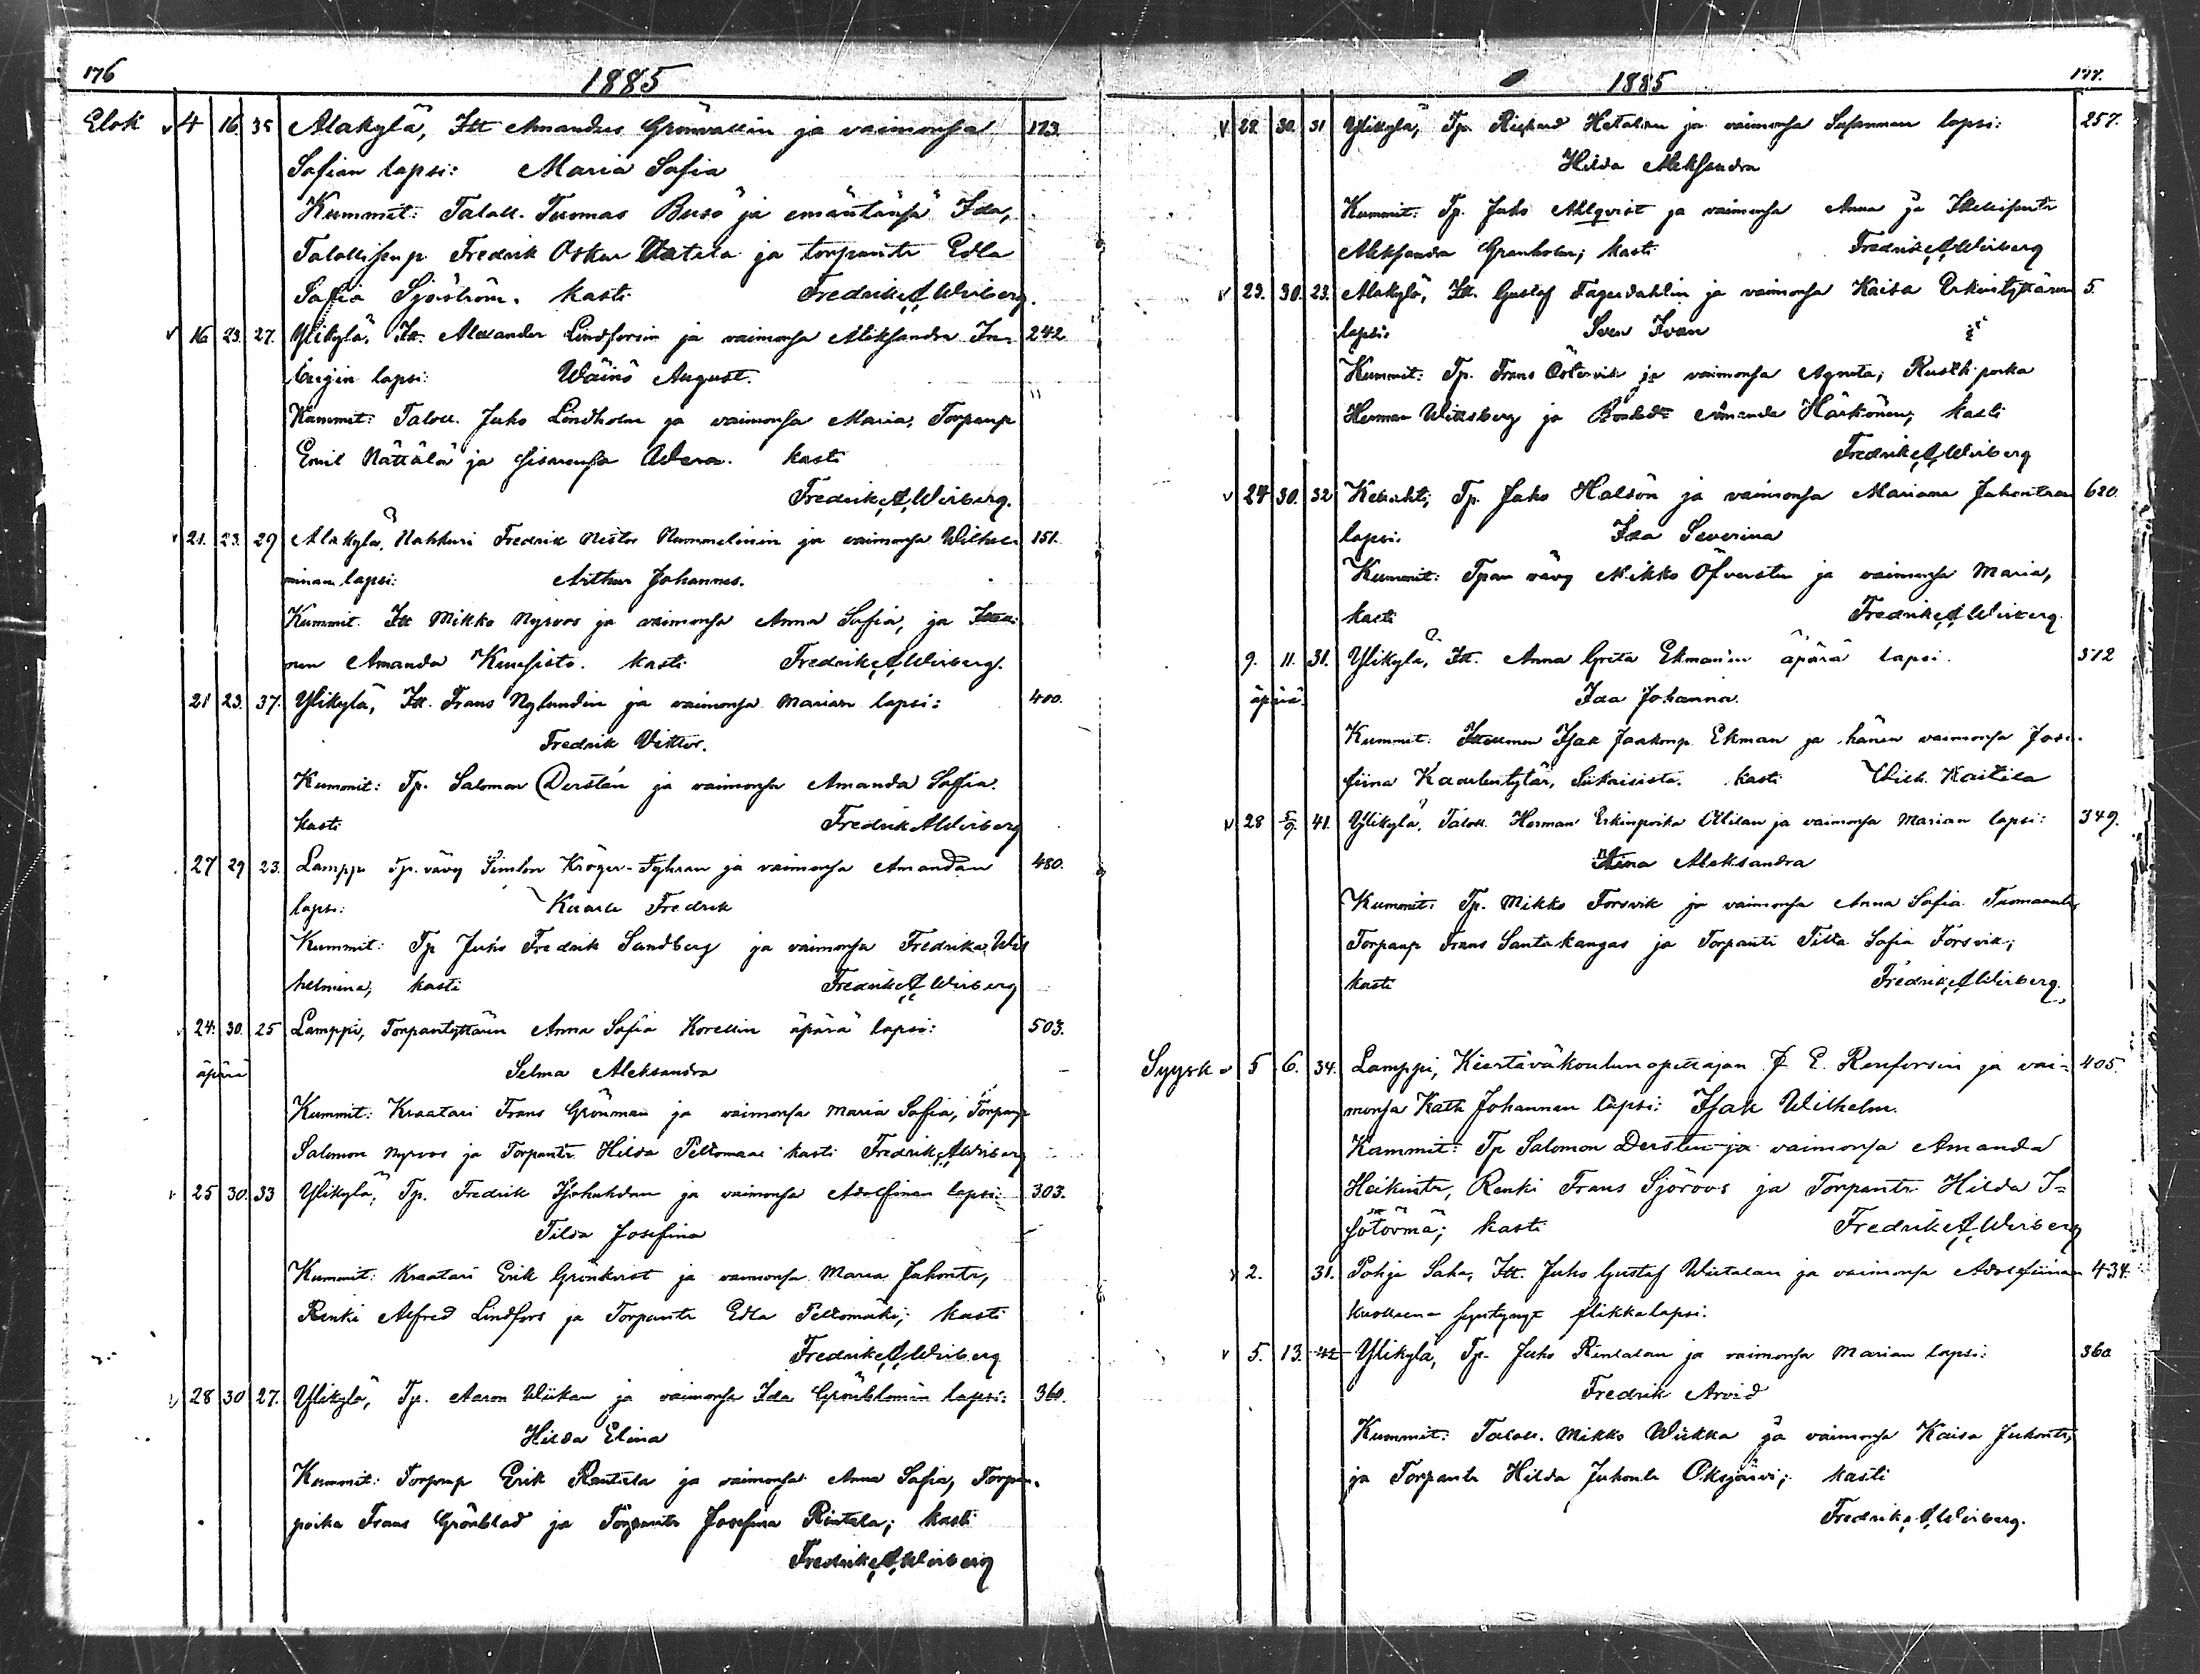 176
1885
Elok 4 16 35 Alakylä, Itt Amandus Grönvallin ja vaimonsa 123.
Sofian lapsi: Maria Sofia
Kummit: Taloll. Tuomas Busö ja emäntänsä Ida,
Talollisenp Fredrik Oskar ja torpantr Edla
Sofia Sjöström. kasti Fredrik A Wirberg.
16 23. 27. Ylikylä, Itt. Alexander Lindforsin ja vaimonsa Aleksandra In- 242
bergin lapsi: Wäinö August.
Kummit: Taloll. Juho Lindholm ja vaimonsa Maria, Torpanp
Emil Nättälä ja sisarensa kasti
Fredrik A Wirberg.
21. 23. 29 Alakylä, Nahkuri Fredrik Nestor Nummelinin ja vaimonsa Wilhel- 151.
minan lapsi: Arthur Johannes.
Kummit. Itt Mikko Nyroos ja vaimonsa Anna Sofia, ja
nen Amanda Kuusisto. kasti Fredrik A Wirberg.
21 23. 37. Ylikylä, Itt. Frans Nylundin ja vaimonsa Marian lapsi: 400.
Fredrik Viktor.
Kummit: Tp. Salomon Derstén ja vaimonsa Amanda Sofia.
kasti Fredrik A Wirberg
27 29 23. Lamppi Tp. vävy Simson Kröger-Fyhran ja vaimonsa Amandan 480.
lapsi: Kaarle Fredrik
Kummit: Tp Juho Fredrik Sandberg ja vaimonsa Fredrika Wil
helmina, kasti Fredrik A Wirberg
24. 30. 25 Lamppi, Torpantyttären Anna Sofia Korellin äpärä lapsi: 503.
äpärä Selma Aleksandra
Kummit: Kraatari Frans Grönman ja vaimonsa Maria Sofia, Torpanp
Salomon Nyroos ja Torpantr. Hilda Peltomaa kasti Fredrik A Wirberg
25 30. 33 Ylikylä, Tp. Fredrik ja vaimonsa Adolfinan lapsi: 303.
Tilda Josefina
Kummit: Kraatari Erik Grönkvist ja vaimonsa Maria Juhontr,
Renki Alfred Lindfors ja Torpantr Edla Peltomäki; kasti
Fredrik A Wirberg
28 30 27. Ylikylä, Tp. Aaron Wiikan ja vaimonsa Ida Grönblomin lapsi: 360.
Hilda Elina
Kummit: Torpanp Erik Rantala ja vaimonsa Anna Sofia, Torpan-
poika Frans Grönblad ja Torpantr Josefina Rintala; kasti
Fredrik A Wirberg
177.
1885
28. 30. 31 Ylikylä, Tp. Rickard Hetalan ja vaimonsa Susannan lapsi: 257.
Hilda Aleksandra
Kummit: Tp. Juho Ahlqvist ja vaimonsa Anna ja Itsellisentr
Aleksandra Granholm; kasti Fredrik A Wirberg
23. 30. 23. Alakylä, Itt. Gustaf Fagerdahlin ja vaimonsa Kaisa Erkintyttären 5.
lapsi: Sven Ivan
Kummit: Tp. Frans Östervik ja vaimonsa Agneta; Rustit poika
Herman Wittsberg ja Amanda Härkönen; kasti
Fredrik A Wirberg
24 30. 32 Tp. Juho Halson ja vaimonsa Mariana Juhontr 620.
lapsi. Ida Severina
Kummit: Tpan vävy Mikko Öfversten ja vaimonsa Maria,
kasti Fredrik A Wirberg.
9. 11. 31. Ylikylä, Itt. Anna Greta Ekmanin äpärä lapsi. 512
äpärä. Ida Johanna.
Kummit: Isak Jaakonp. Ekman ja hänen vaimonsa Jose-
fiina Kaarlentytär, Siikaisista. kasti Wilh. Kaitila
28 5/9. 41. Ylikylä, Taloll. Herman Erkinpoika Ulilan ja vaimonsa Marian lapsi: 349.
Aina Aleksandra
Kummit: Tp. Mikko Forsvik ja vaimonsa Anna Sofia
Torpanp Frans Santakangas ja Torpantr Tilda Sofia Forsvik;
kasti Fredrik A Wirberg.
Syysk 5 6. 34. Lamppi, Kiertäväkoulun opettajan J. E. Renforsin ja vai- 405.
monsa Kath Johannan lapsi: Isak Wilhelm.
Kummit: Tp Salomon Derstén ja vaimonsa Amanda
Heikintr, Renki Frans Sjöroos ja Torpantr Hilda I-
sotörmä; kasti Fredrik A Wirberg
2. 31. Pohja Saha, Itt. Juho Gustaf Wiitalan ja vaimonsa Adolfiinan 434.
kuolleena syntynyt flikkalapsi.
5. 13. 42 Ylikylä, Tp. Juho Rintalan ja vaimonsa Marian lapsi: 360
Fredrik Arvid
Kummit: Taloll. Mikko Wiikka ja vaimonsa Kaisa Juhontr,
ja Torpantr Hilda Juhontr Oksjärvi; kasti
Fredrik A Wirberg.